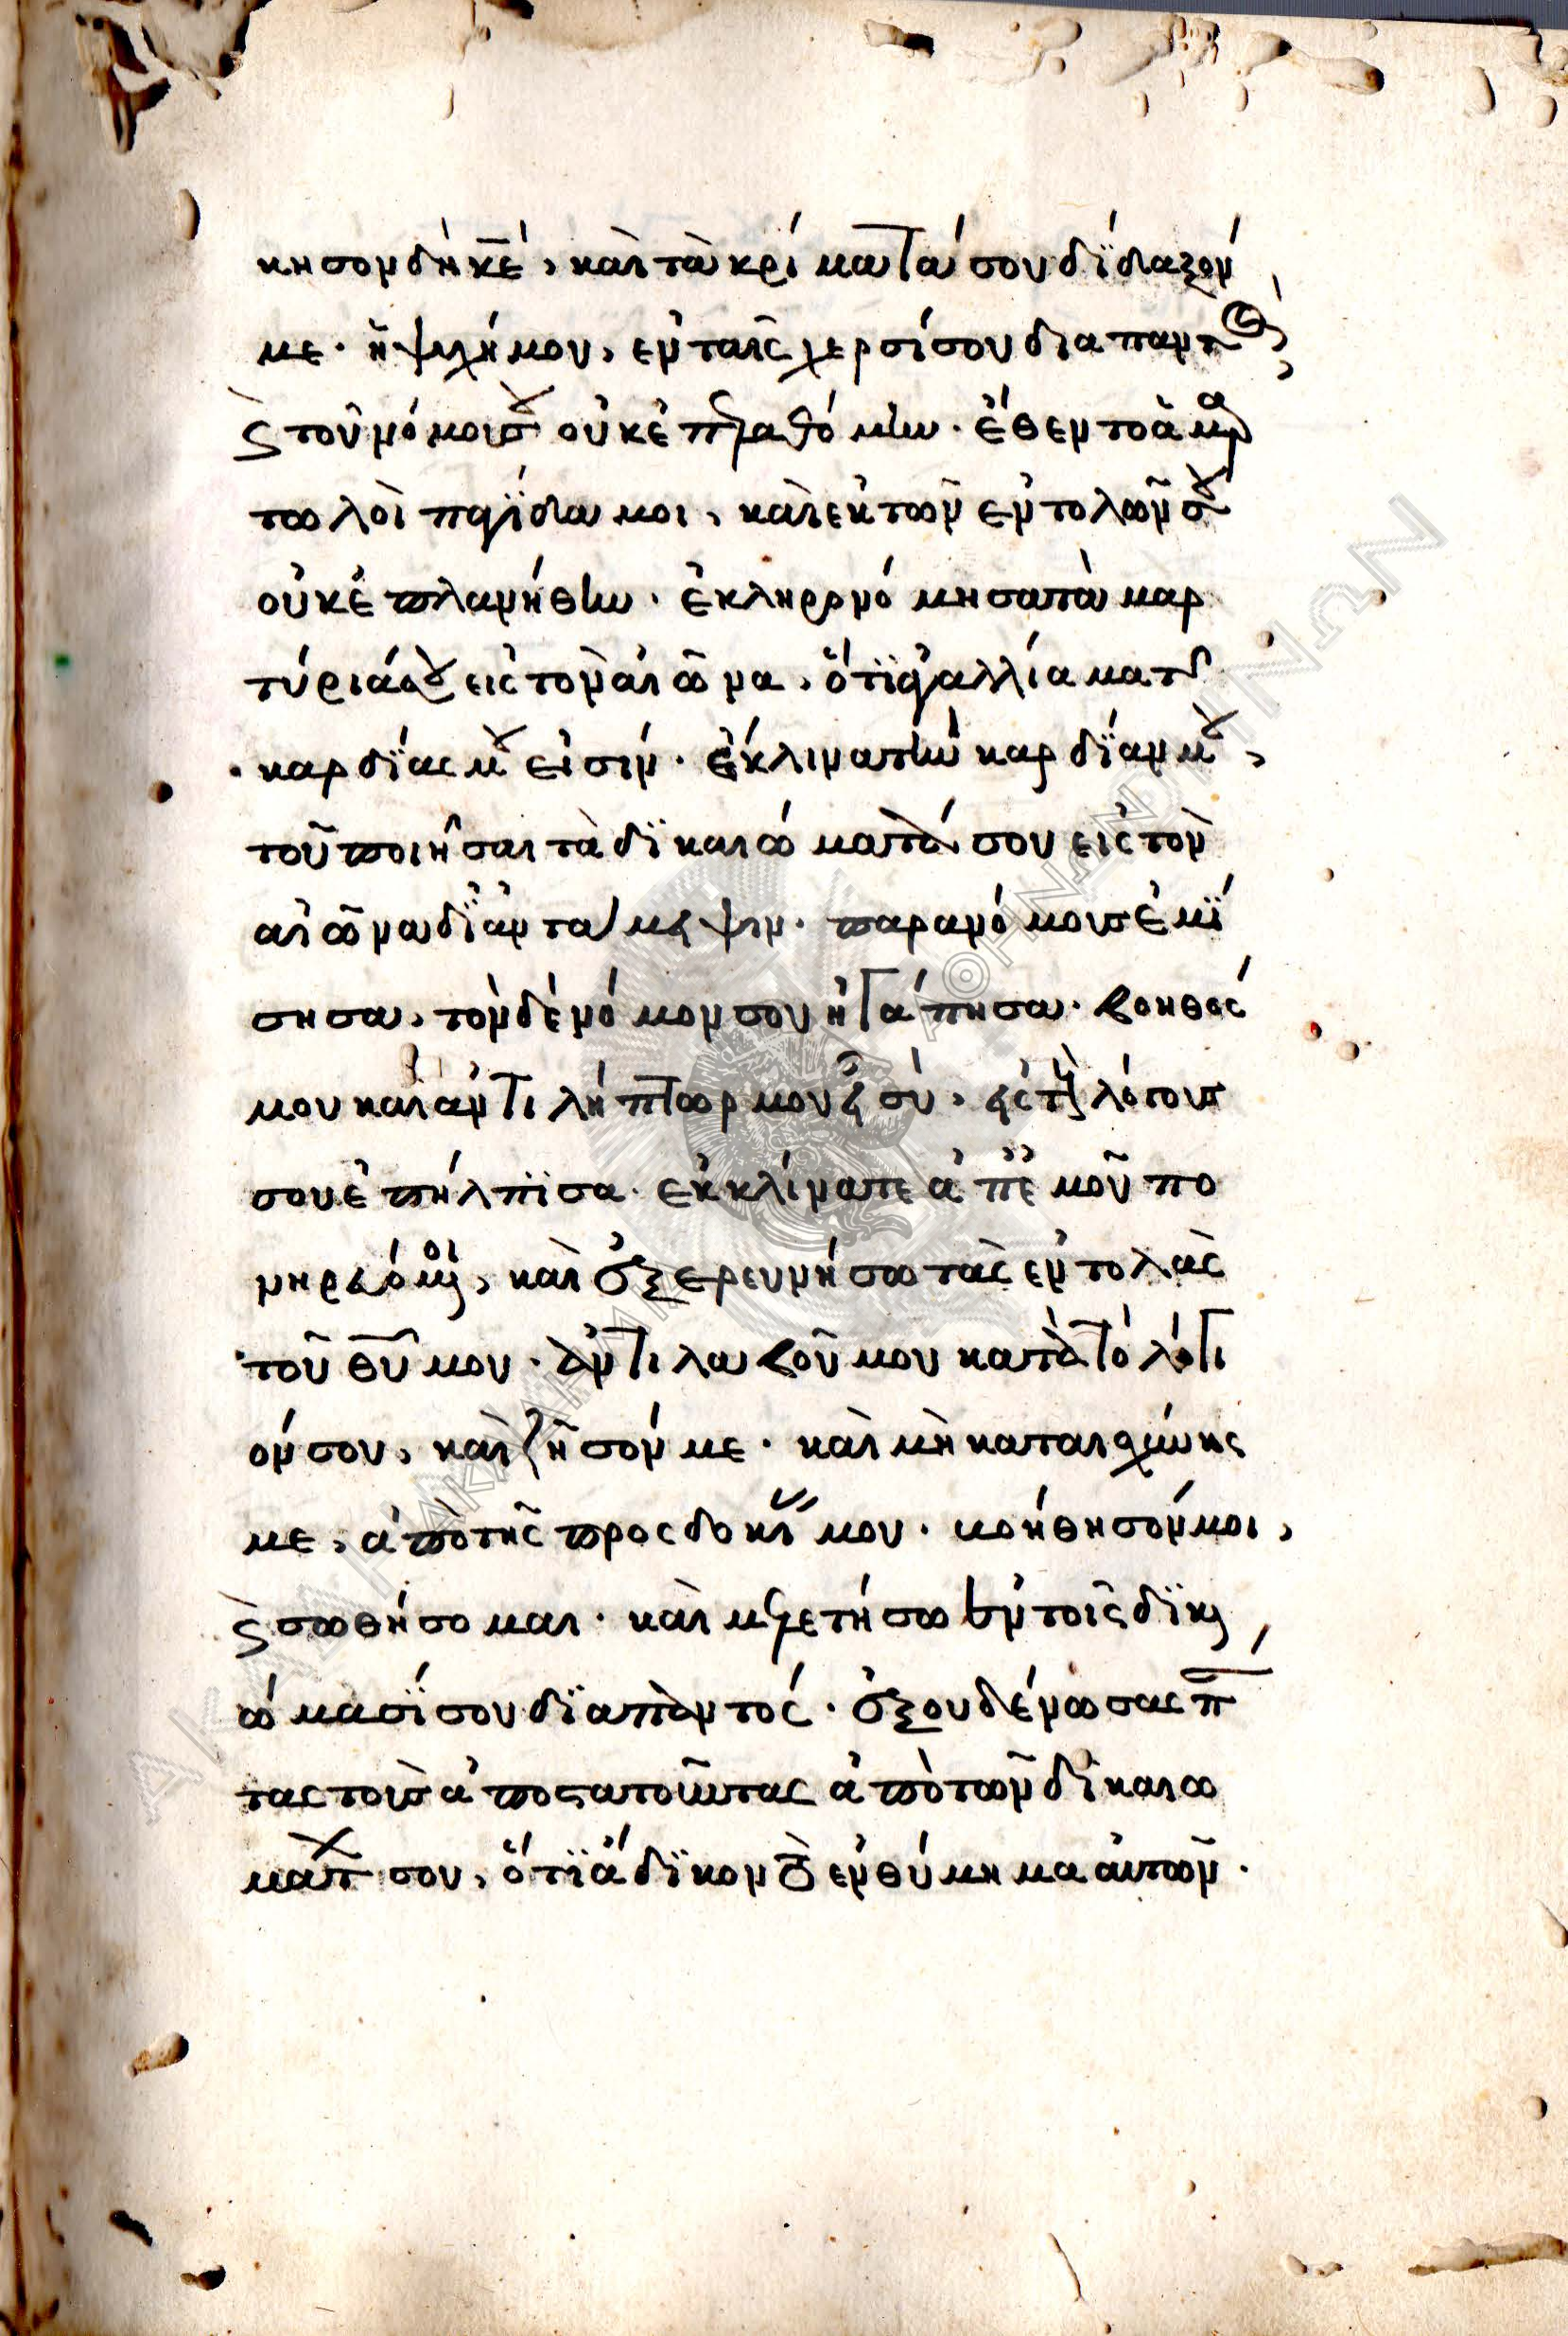 κησον δὴ κ̅ε̅, καὶ τὰ κρίματά σου δίδαξόν
με· ἡ ψυχή μου, ἐν ταῖς χερσί σου διαπαντὸς,
ϛ τοῦ νόμου σου οὐκ ἐπελαθόμην· ἔθεντο ἁμαρ
τωλοὶ παγίδα μοι, καὶ ἐκ τῶν ἐντολῶν σου
οὐκ ἐπλανήθην· ἐκληρονόμησα τὰ μαρ
τύριά σου εἰς τὸν αἰῶνα, ὅτι ἀγαλλίαμα τῆς
καρδίας μου εἰσίν· ἔκλινα τὴν καρδίαν μου,
τοῦ ποιῆσαι τὰ δικαιώματά σου εἰς τὸν
αἰῶνα δι' ἀντάμειψιν· παρανόμους ἐμί
σησα, τὸν δὲ νόμον σου ἠγάπησα· βοηθός
μου καὶ ἀντιλήπτωρ μου εἶ σύ, εἰς τοὺς λόγους
σου ἐπήλπισα· ἐκκλίνατε ἀπ' ἐμοῦ πο
νηρευόμενοι, καὶ ἐξερευνήσω τὰς ἐντολὰς
τοῦ θ̅υ̅ μου· ἀντιλαβοῦ μου κατὰ τὸ λόγι
όν σου, καὶ ζῆσόν με· καὶ μὴ καταισχύνῃς
με, ἀπὸ τῆς προσδοκίας μου· βοήθησόν μοι,
ϛ σωθήσομαι· καὶ μελετήσω ἐν τοῖς δικαι
ώμασί σου διαπαντός· ἐξουδένωσας πάν
τας τοὺς ἀποστατοῦντας ἀπὸ τῶν δικαιω
μάτων σου, ὅτι ἄδικον τὸ ἐνθύμημα αὐτῶν·